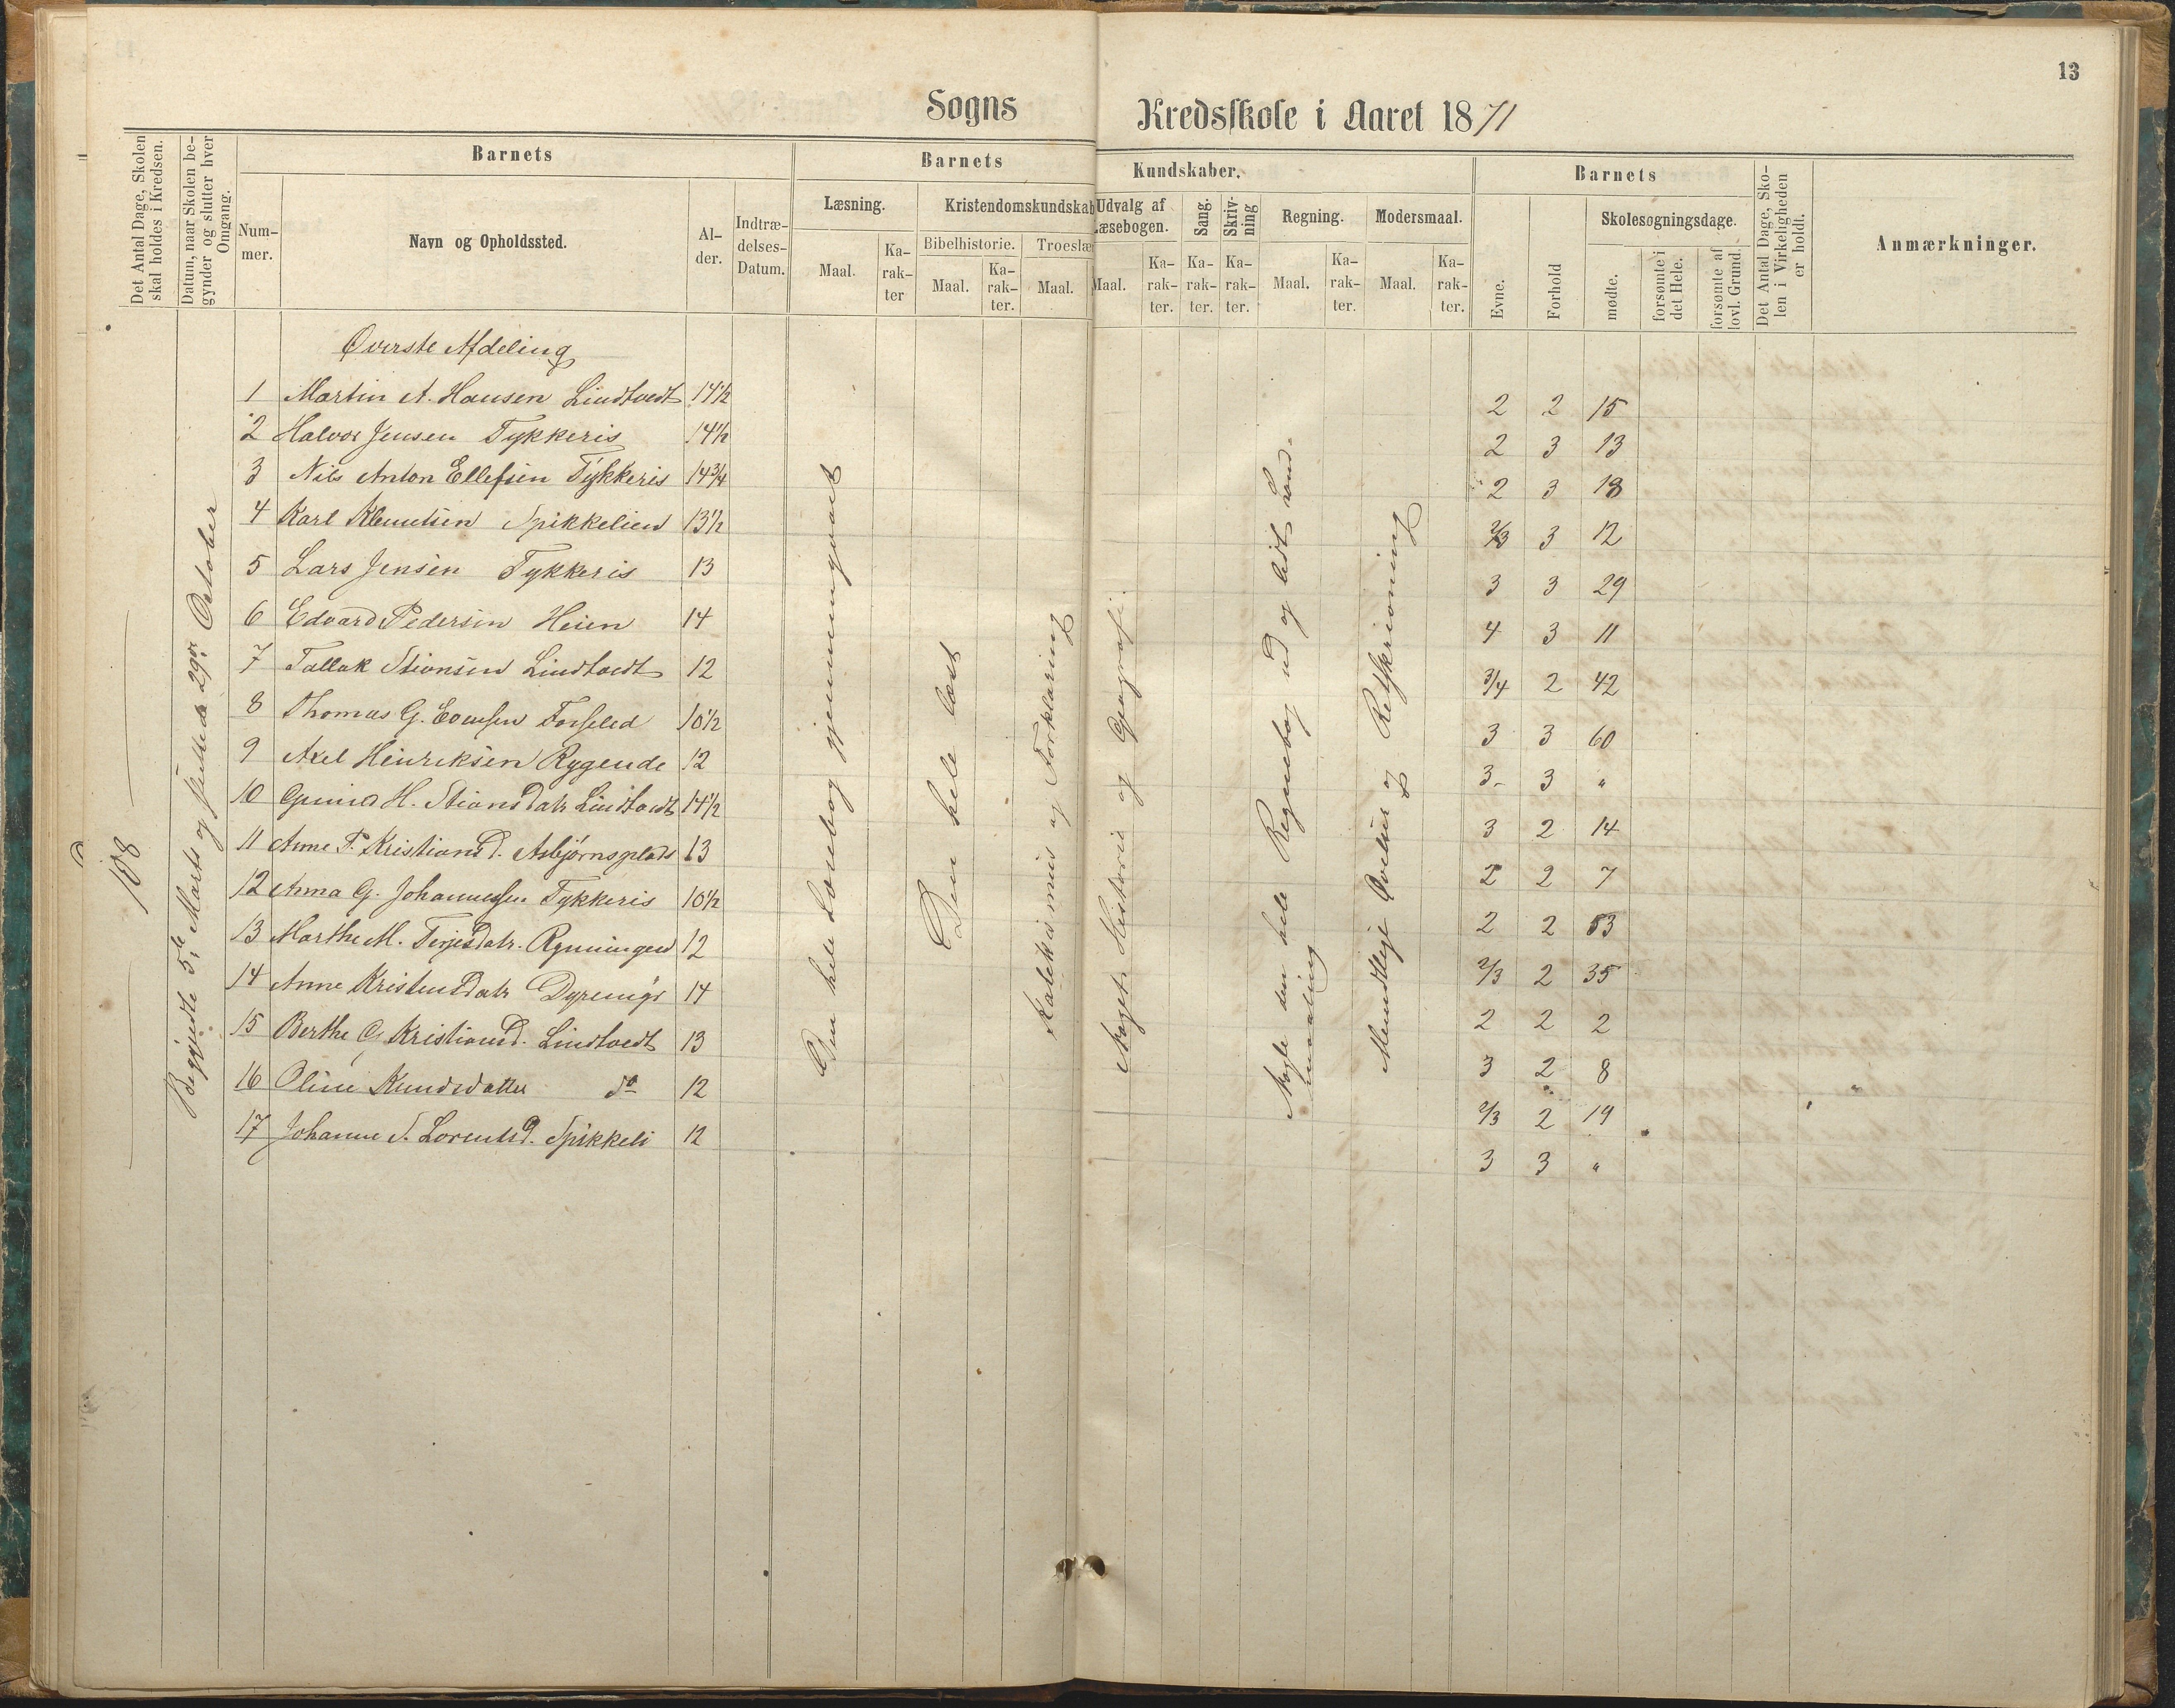 13
Sogns Kredsskole i Aaret 1871
Det Antal Dage, Skolen skal holdes i Kredsen.
Datum, naar Skolen begynder og slutter hver Omgang.
Barnets
Nummer.
Navn og Opholdssted.
Alder.
Indtrædelses-Datum.
Barnets Kundskaber.
Læsning.
Maal.
Karakter
Kristendomskundskab
Bibelhistorie.
Maal.
Karakter.
Troeslær
Maal.
Udvalg af Læsebogen.
Maal.
Karakter.
Sang.
Karakter.
Skrivning
Karakter.
Regning.
Maal.
Karakter.
Modersmaal.
Maal.
Karakter.
Barnets
Evne.
Forhold
Skolesøgningsdage.
mødte.
forsømte i det Hele.
forsømte af lovl. Grund.
Det Antal Dage, Skolen i Virkeligheden er holdt.
Anmærkninger.
108
Begyndte 5te Marts og sluttede 29de October
Øverste Afdeling
1 Martin A. Hansen Lindtvedt 14½ 2 2 15
2 Halvor Jensen Tykkeris 14½ 2 3 13
3 Nils Anton Ellefsen Tykkeris 14¾ 2 3 18
4 Karl Klemetsen Spikkelien 13½ 2/3 3 12
5 Lars Jensen Tykkeris 13 3 3 29
6 Edvard Pedersen Heien 14 4 3 11
7 Tallak Stiansen Lindtvedt 12 3/4 2 42
8 Thomas G. Evensen 10½ 3 3 60
9 Axel Henriksen Rygende 12 3 3 "
10 H. Stiansdatr Lindtvedt 14½ 3 2 14
11 Anne P. Kristiansd. Asbjørnsplads 13 2 2 7
12 Anna G. Johannessen Tykkeris 10½ 2 2 53
13 Marthe M. Terjesdatr. Rynningen 12 2/3 2 35
14 Anne Kristensdatr 14 2 2 2
15 Berthe G Kristiansd. Lindtvedt 13 3 2 8
16 Oline Knudsdatter do 12 2/3 2 19
17 Johanne S. Lorentsd. Spikkeli 12 3 3 "
Den hele Læsebog gjennemgaaet
Den hele læst
Katekismus og Forklaring
Noget Historie og Geografi.
Nogle den hele Regnebog ud og lidt
Mundtlige Øvelser og Retskrivning